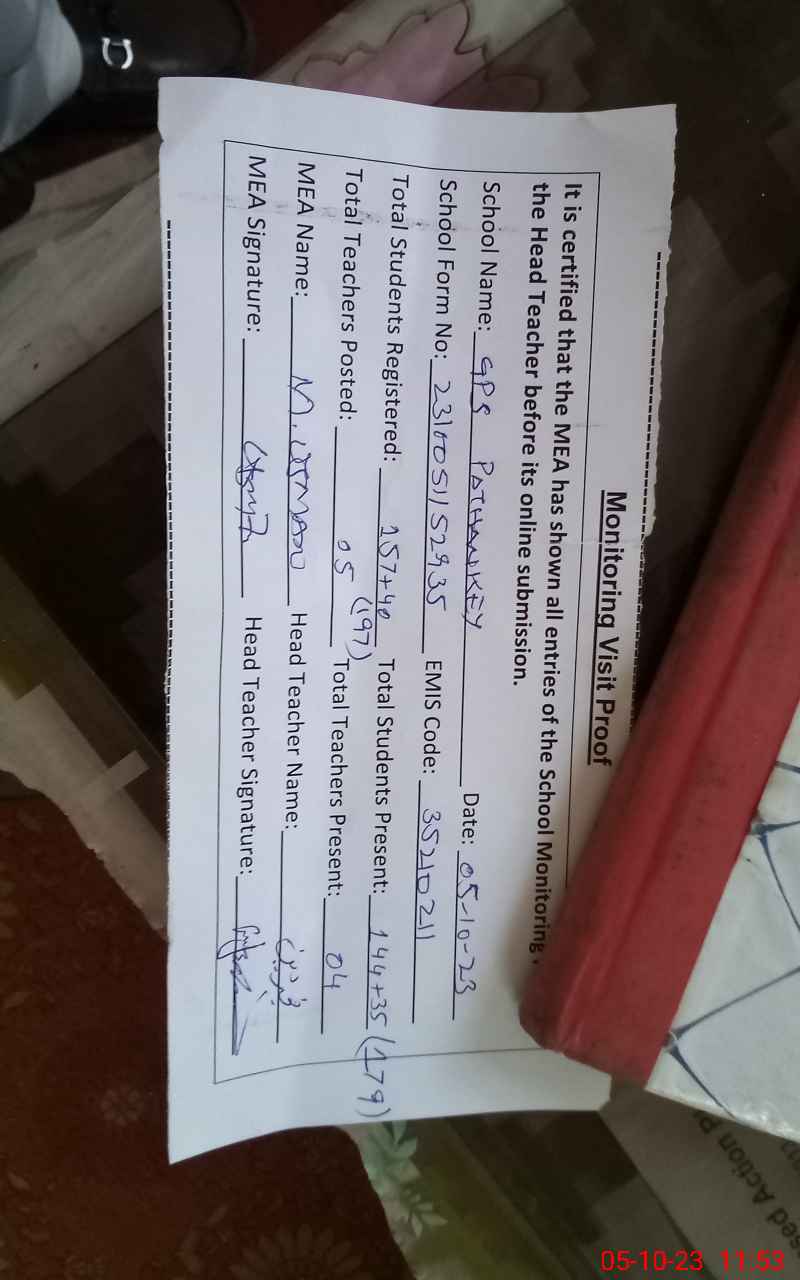 Monitoring Visit Proof
It is certified that the MEA has shown all entries of the School Monitoring
the Head Teacher before its online submission.
School Name: GPS PATHANKEY Date: 05-10-23
School Form No: 2310051152935 EMIS Code: 35210211
Total Students Registered: 157+40 (197) Total Students Present: 144+35 (179)
Total Teachers Posted: 05 Total Teachers Present: 04
MEA Name: M. USMAN Head Teacher Name:
MEA Signature: Head Teacher Signature:
sed Action P
05-10-23 11:53